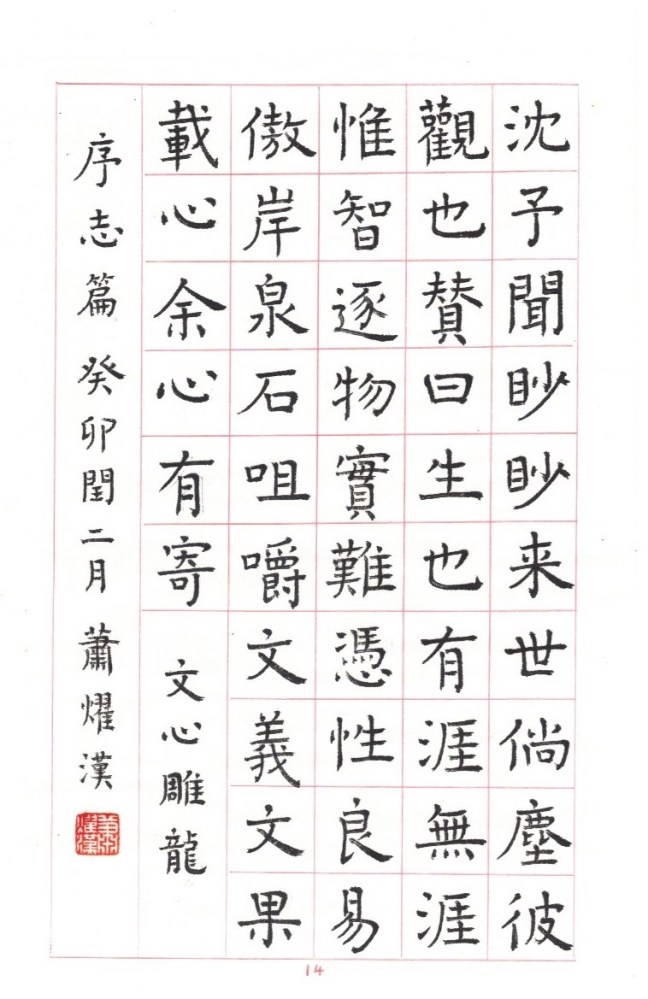 沈予聞眇眇来世倘塵彼
觀也贊曰生也有涯無涯
惟智逐物實難憑性良易
傲岸泉石咀嚼文義文果
載心余心有寄 文心雕龍
序志篇 癸卯閏二月 蕭燿漢
蕭燿漢
14